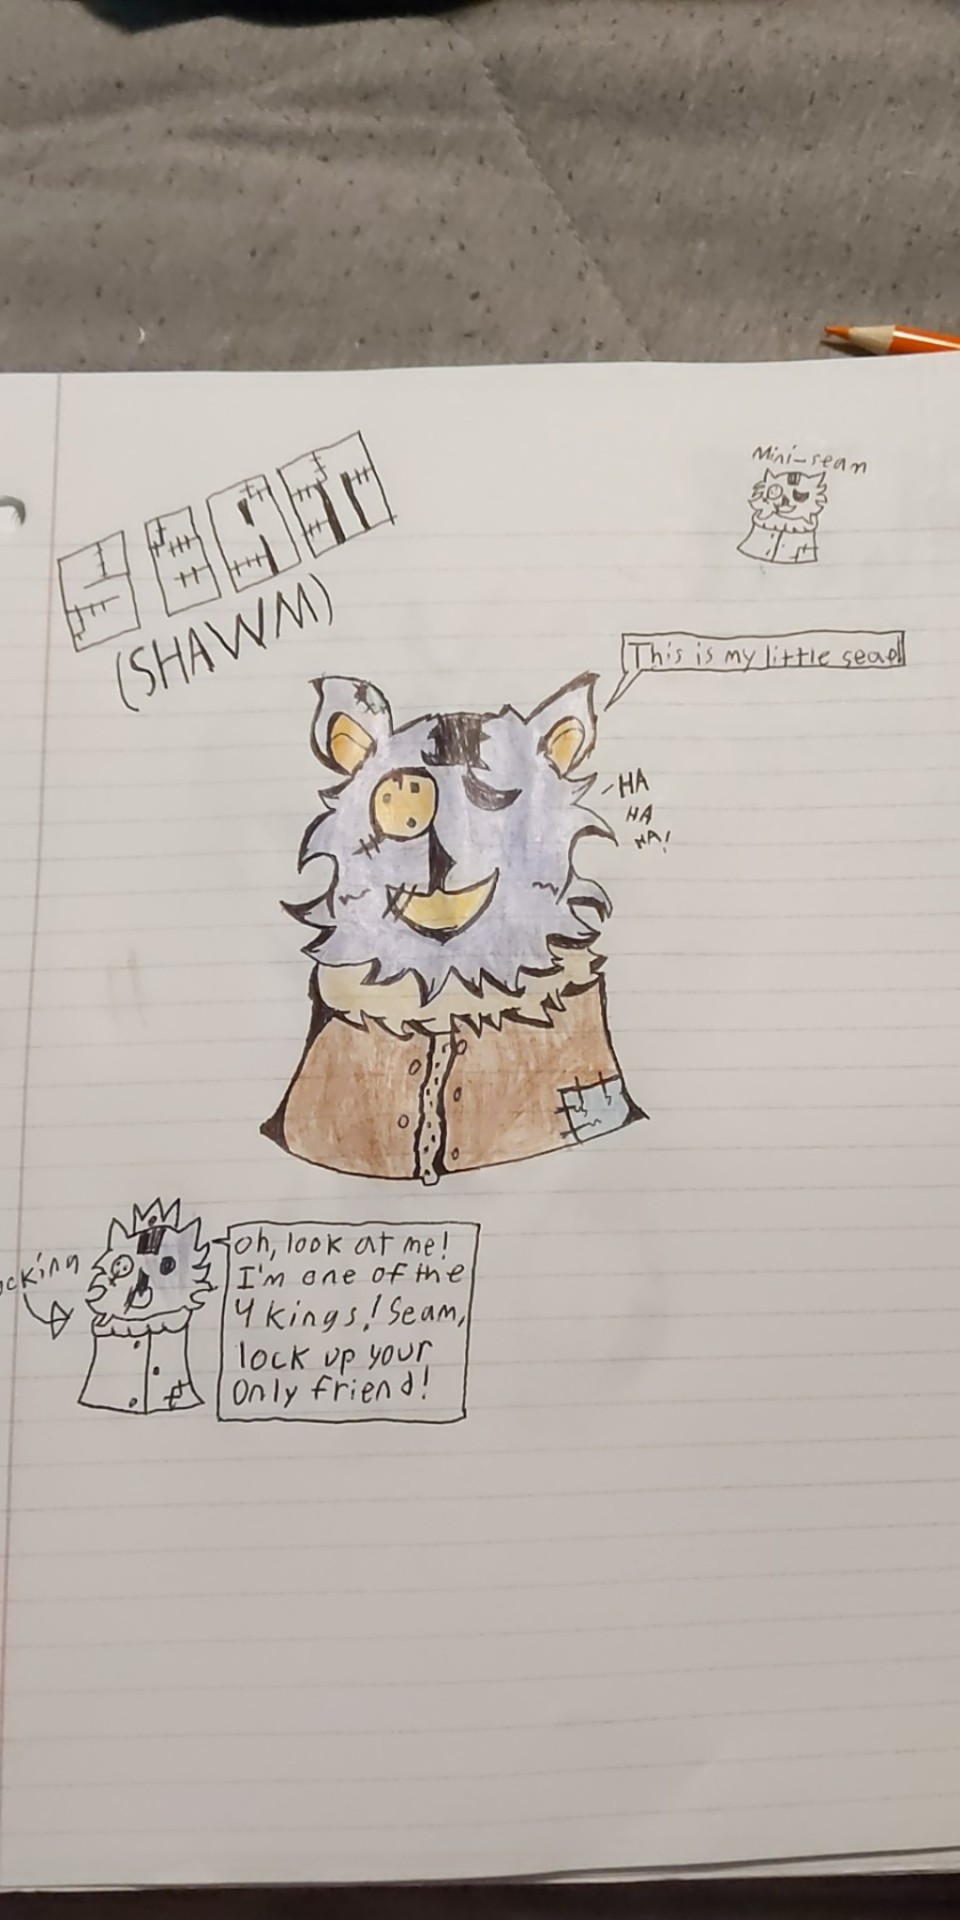 SEAM
(SHAWM)
Mini-seam
This is my little seap!
-HA
HA
HA!
ocking
oh, look at me!
I'm one of the
4 kings! Seam,
lock up your
Only friend!